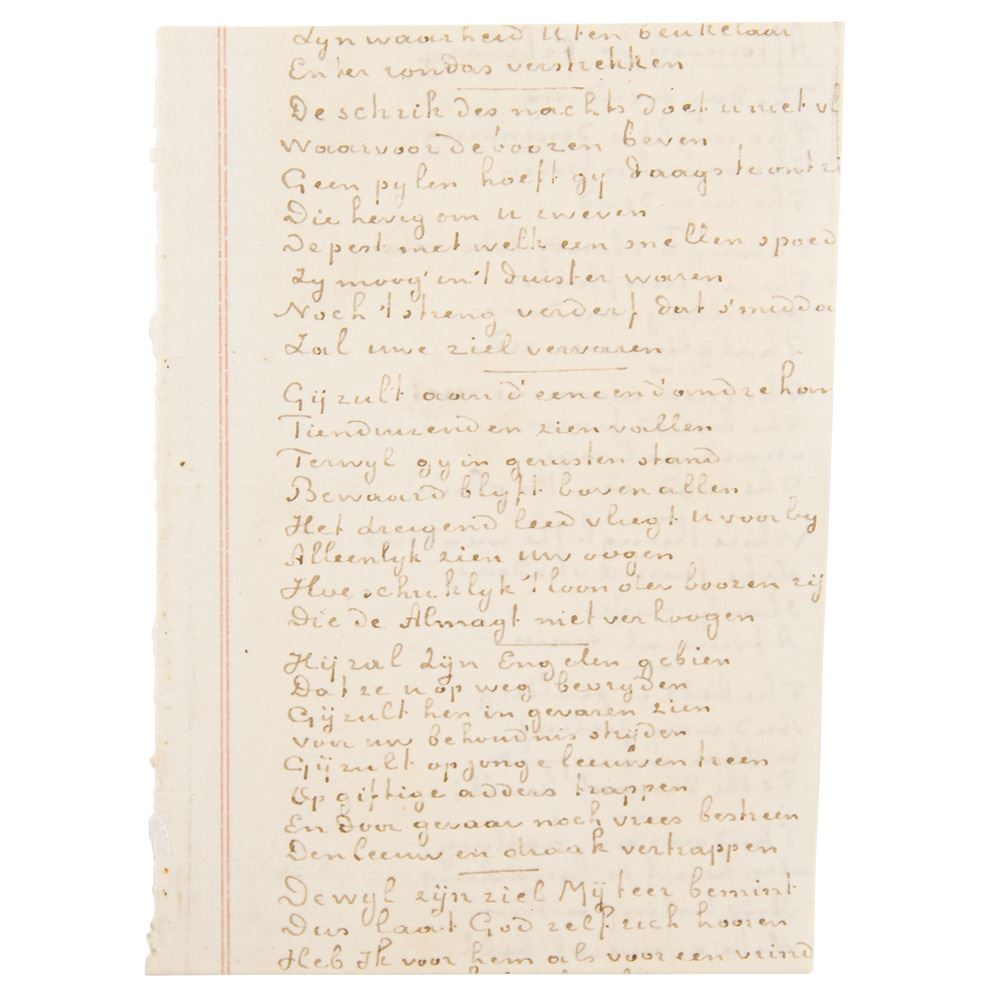 Zyn waarheid U ten beukelaar
En ter rondas verstrekken
De schrik des nachts doet u niet vl
Waarvoor de boozen beven
Geen pylen hoeft gy daags te ontzi
Die hevig om u zweven
De pest met welk een snellen spoed
Zy moog' in 't duister waren
Noch 't streng verderf dat s'midda
Zal uwe ziel vervaren
Gij zult aan d'eene en d'andre han
Tienduizenden zien vallen
Terwyl gy in gerusten stand
Bewaard blyft boven allen
Het dreigend leed vliegt u voorby
Alleenlyk zien uw oogen
Hoe schriklyk 't loon der boozen zij
Die de Almagt niet verhoogen
Hij zal Zijn Engelen gebien
Dat ze u op weg bevryden
Gij zult hen in gevaren zien
Voor uw behoud'nis strijden
Gij zult op jonge leeuwen treen
Op giftige adders trappen
En door gevaar noch vrees bestreen
Den leeuw en draak vertrappen
Dewyl zijn ziel Mij teer bemint
Dus laat God zelf zich hooren
Heb Ik voor hem als voor een vrind